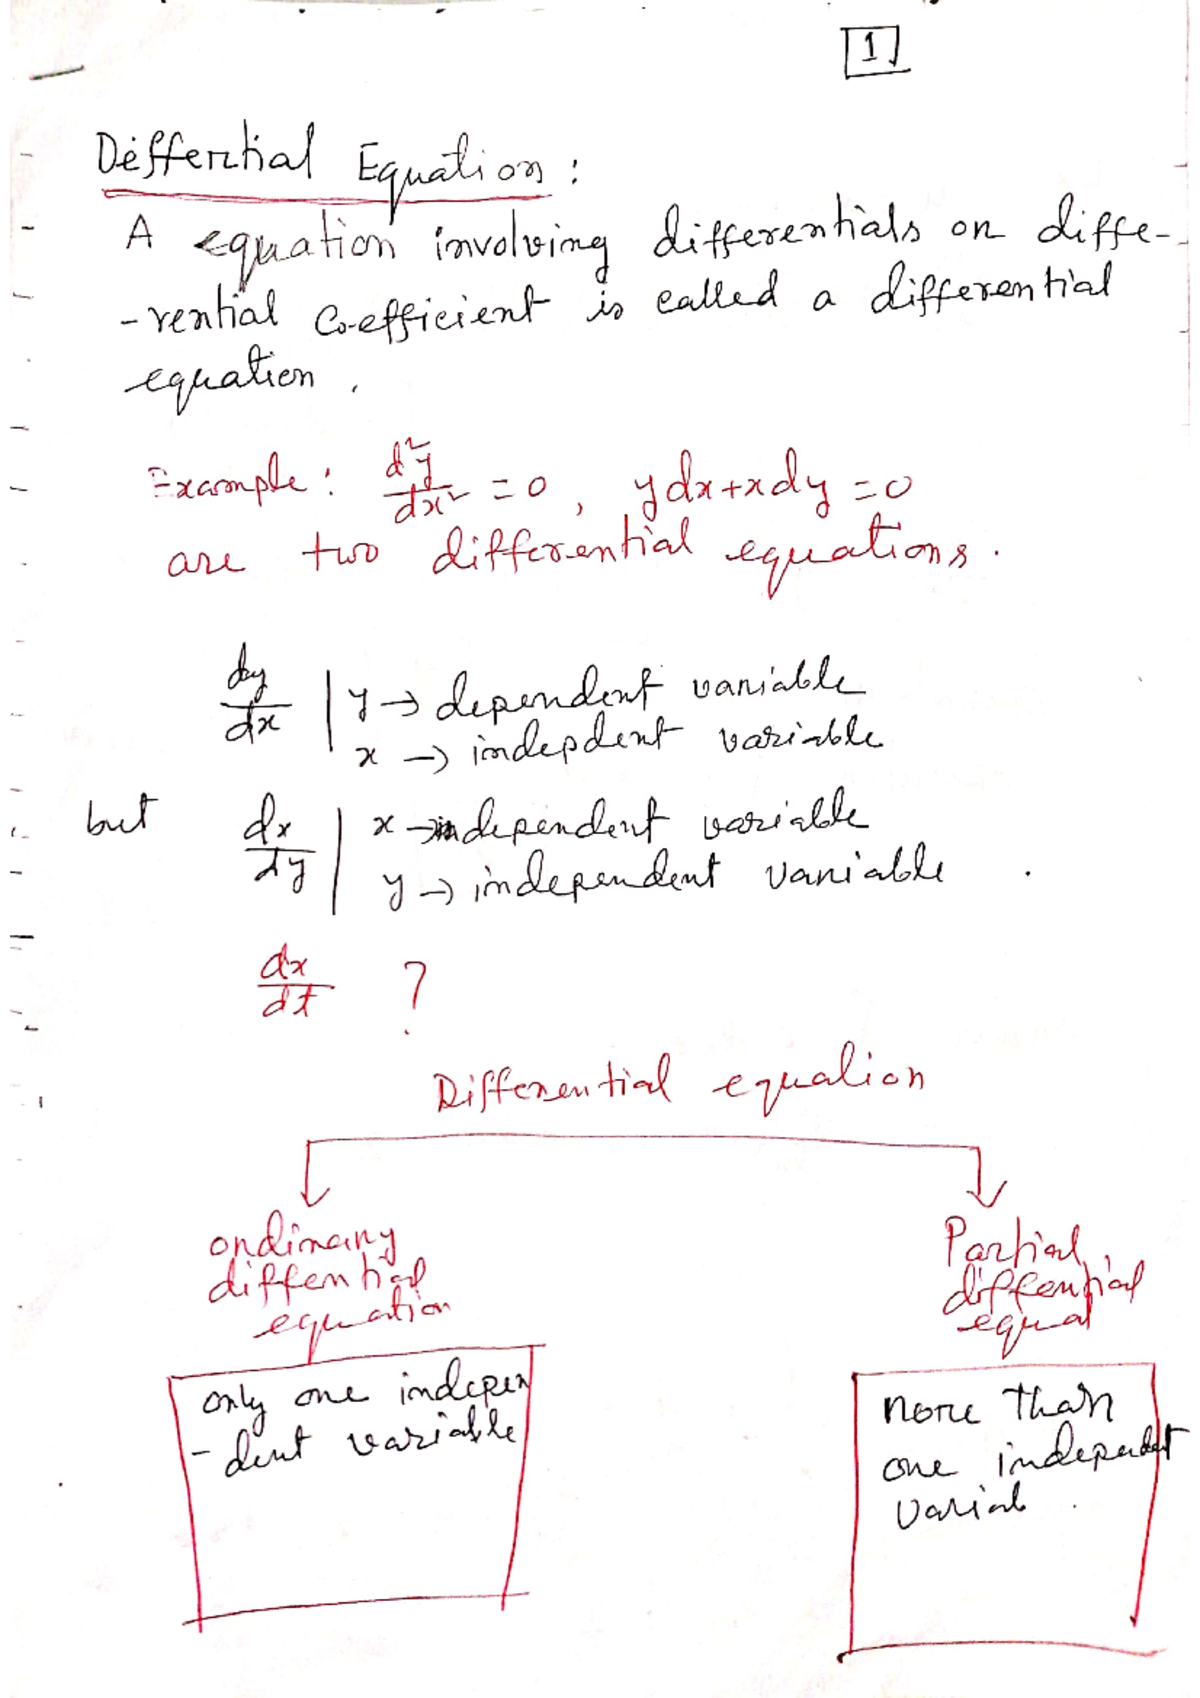 1
Differential Equation:
A equation involving differentials or diffe-
-rential Co-efficient is called a differential
equation.
Example: d²y/dx² = 0, ydx+xdy=0
are two differential equations.
dy/dx | y → dependent variable
x → indepdent variable
but dx/dy | x → independent variable
y → independent variable.
dx/dt ?
Differential equation
ordinary
diffential
equation
Partial
diffential
equal
only one indepen
-dent variable
more than
one independent
variabl.